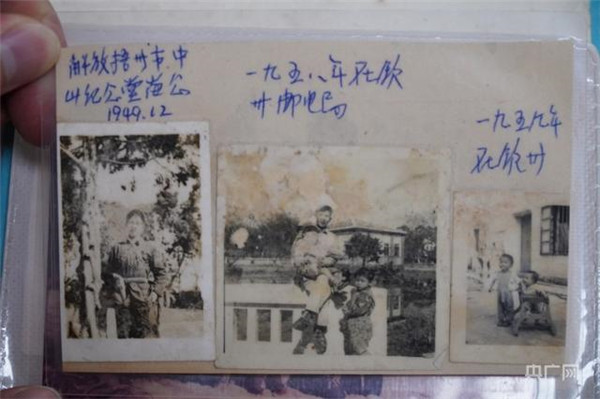 解放梧州市中
山纪念堂
1949.12
一九五八年在钦
州邮电局
一九五九年
在钦州
央广网